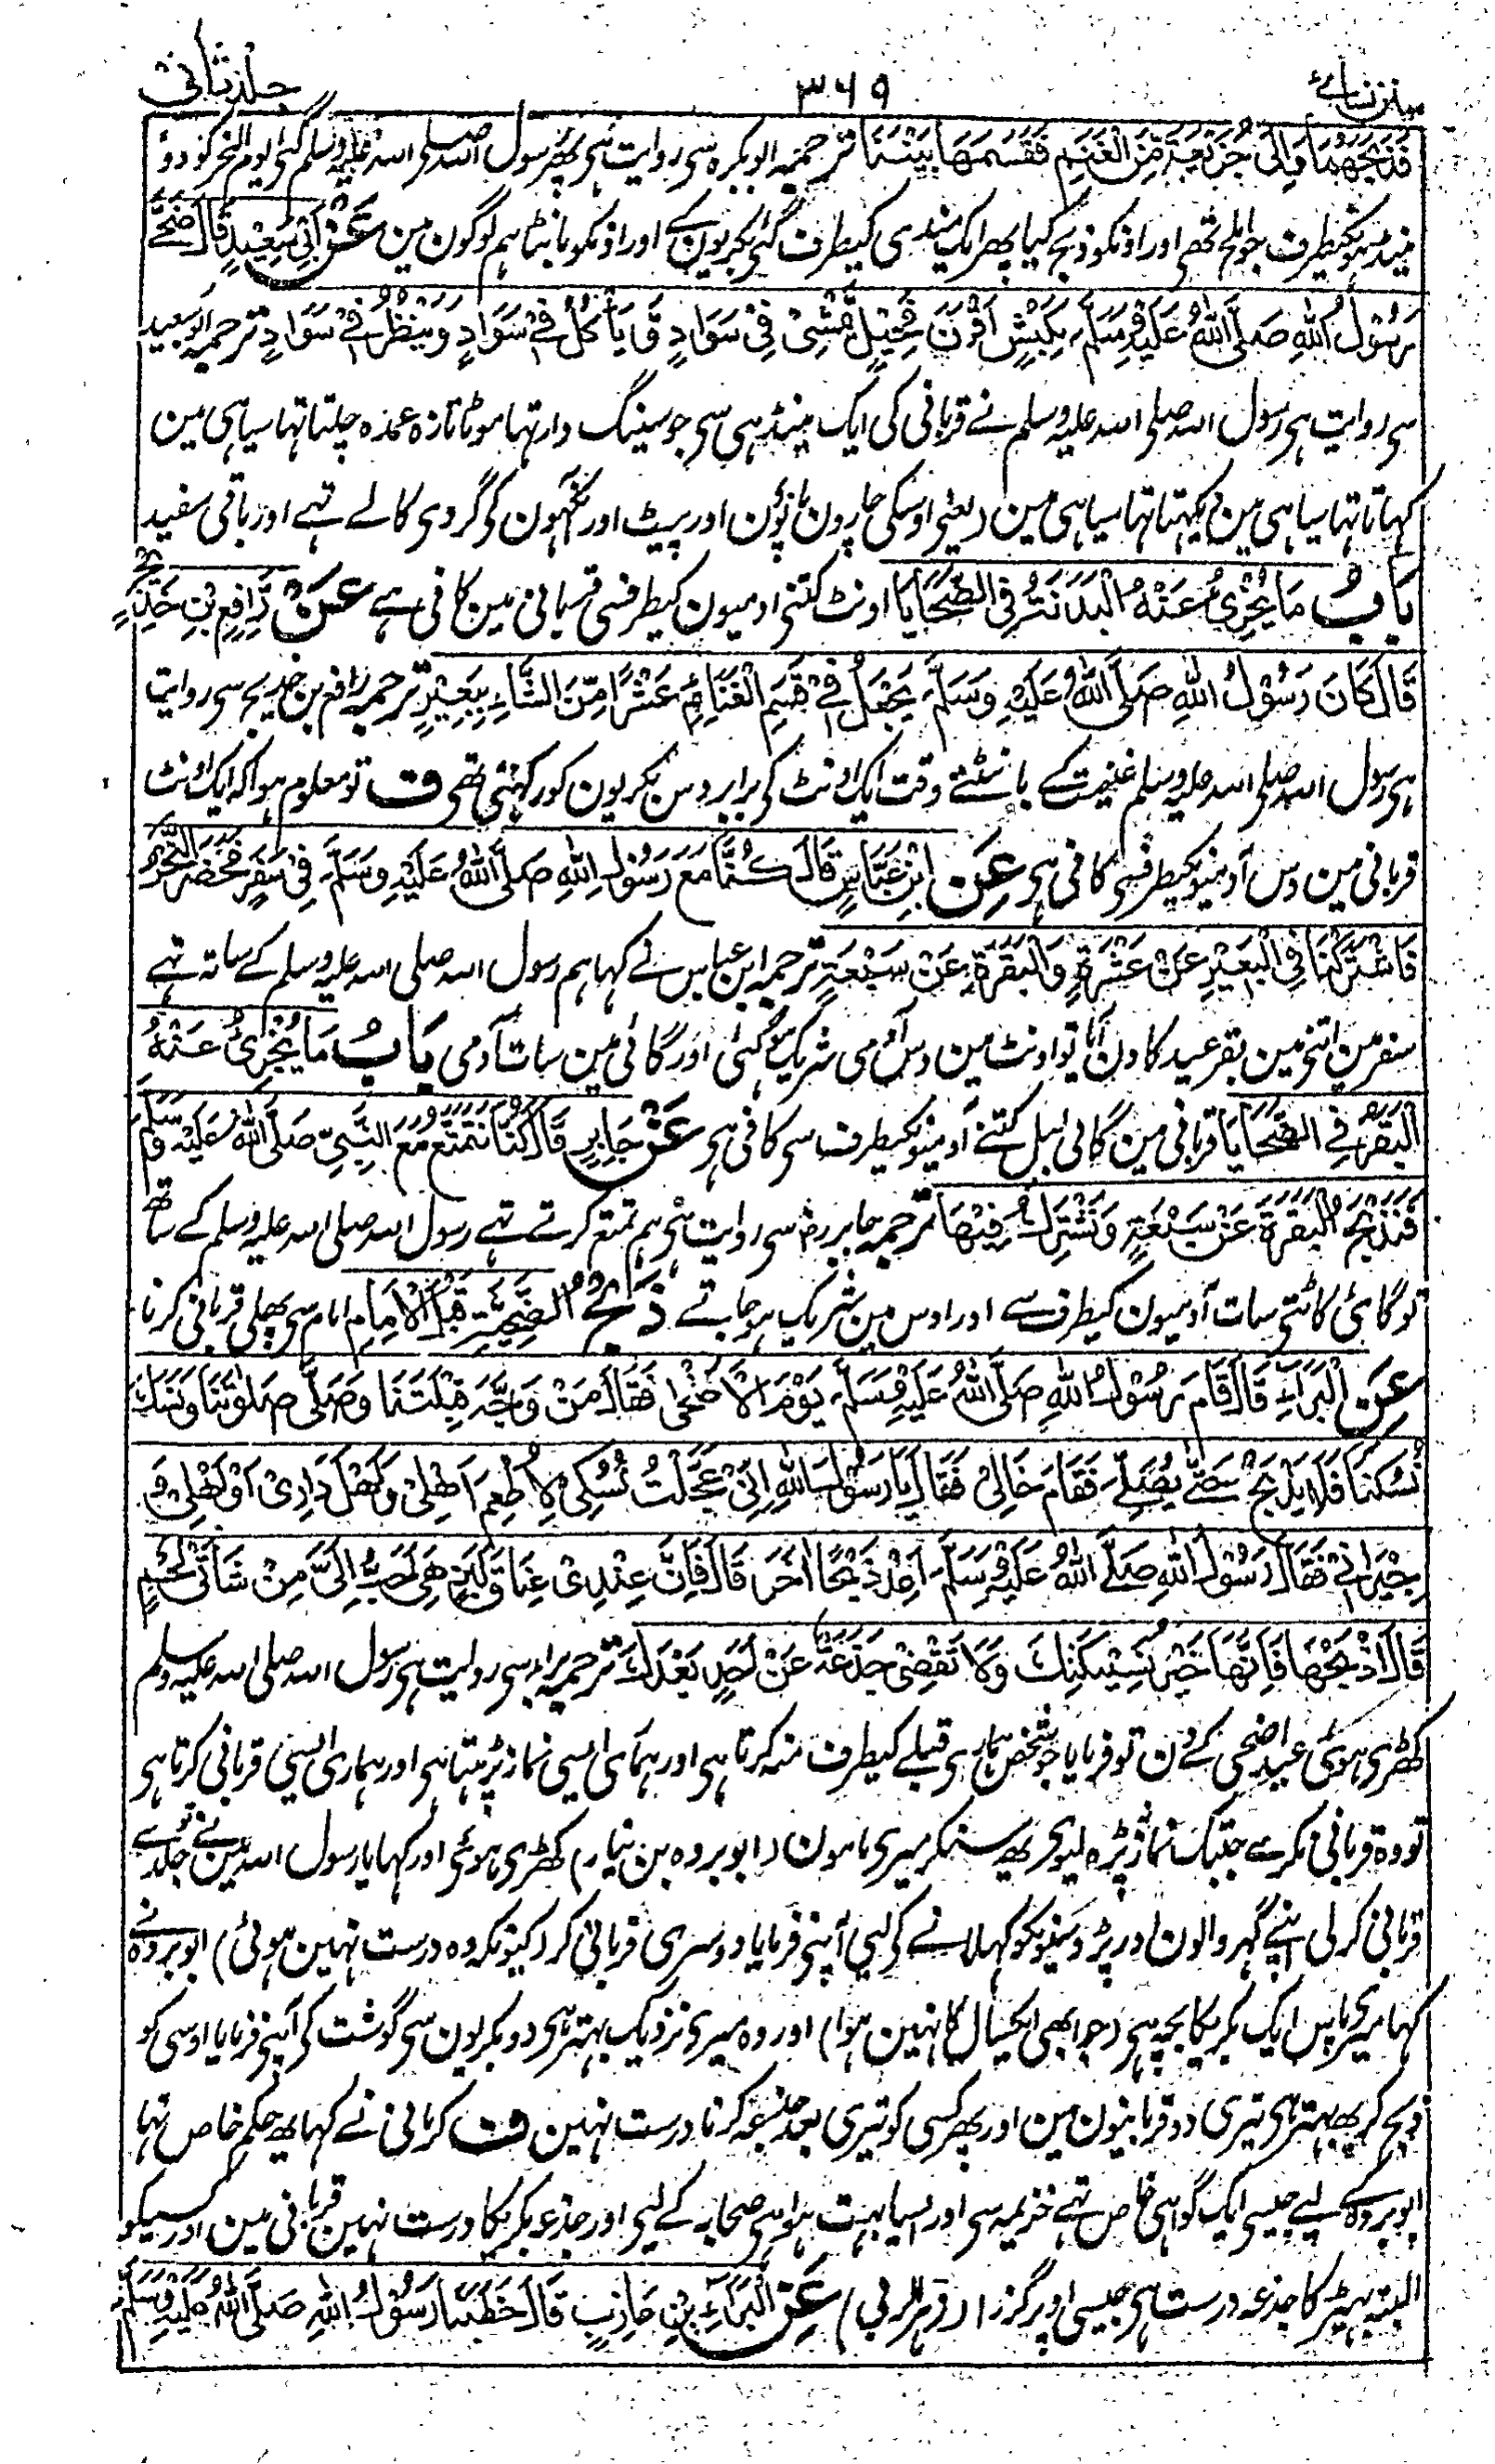 سنن نسائے ۳۶۹ جلد ثانی
فَذَبَحَهُمَا وَاِلٰی جُزَیْعَةٍ مِّنَ الْغَنَمِ فَقَسَمَهَا بَیْنَنَا ترجمہ ابو بکرہ سی روایت ہی پھر رسول اللہ صلی اللہ علیہ وسلم گئی یوم النحر کو دو
مینڈہونکیطرف جو املح تھی اور اونکو ذبح کیا پھر ایک مندی کیطرف گئی بکریون کے اور اونکو بانٹا ہم لوگون مین عَنْ اَبِیْ سَعِیْدٍ قَالَ ضَحّٰے
رَسُوْلُ اللّٰهِ صَلَّی اللّٰهُ عَلَیْهِ وَسَلَّمَ بِکَبْشٍ اَقْرَنَ فَحِیْلٍ یَمْشِیْ فِیْ سَوَادٍ وَّ یَاْکُلُ فِیْ سَوَادٍ وَّ یَنْظُرُ فِیْ سَوَادٍ ترجمہ ابو سعید
سی روایت ہی رسول اللہ صلی اللہ علیہ وسلم نے قربانی کی ایک مینڈہی سی جو سینگ دار تہا موٹا تازہ عمدہ چلتا تہا سیاہی مین
کہاتا تہا سیاہی مین دیکہتا تہا سیاہی مین (یعنی اوسکی چارون پانؤن اور پیٹ اور آنکہون کی گردی کالے تہے اور باقی سفید
بَابُ مَا یُجْزِئُ عَنْهُ الْبَدَنَةُ فِی الضَّحَایَا اونٹ کتنی ادمیون کیطرفسی قربانی مین کافی ہے عَنْ رَافِعِ بْنِ خَدِیْجٍ
قَالَ کَانَ رَسُوْلُ اللّٰهِ صَلَّی اللّٰهُ عَلَیْهِ وَسَلَّمَ یَجْعَلُ فِیْ قَسْمِ الْغَنَائِمِ عَشْرًا مِّنَ الشَّاءِ بِبَعِیْرٍ ترجمہ رافع بن خدیج سی روایت
ہی رسول اللہ صلی اللہ علیہ وسلم غنیمت کے بانٹتے وقت ایک اونٹ کی برابر دس بکریون کو رکہتی تھی ف تو معلوم ہوا کہ ایک اونٹ
قربانی مین دس آدمیونکیطرفسی کافی ہی عَنِ ابْنِ عَبَّاسٍ قَالَ کُنَّا مَعَ رَسُوْلِ اللّٰهِ صَلَّی اللّٰهُ عَلَیْهِ وَسَلَّمَ فِیْ سَفَرٍ فَحَضَرَ النَّحْرُ
فَاشْتَرَکْنَا فِی الْبَعِیْرِ عَنْ عَشْرَةٍ وَالْبَقَرَةِ عَنْ سَبْعَةٍ ترجمہ ابن عباس نے کہا ہم رسول اللہ صلی اللہ علیہ وسلم کے ساتہ تہے
سفر مین اتنی مین بقرعید کا دن آیا تو اونٹ مین دس آدمی شریک ہو گئی اور گائی مین سات آدمی بَابُ مَا یُجْزِئُ عَنْهُ
الْبَقَرَةُ فِی الضَّحَایَا قربانی مین گائی بیل کتنے آدمیونکیطرف سی کافی ہی عَنْ جَابِرٍ قَالَ کُنَّا نَتَمَتَّعُ مَعَ النَّبِیِّ صَلَّی اللّٰهُ عَلَیْهِ وَسَلَّمَ
فَنَذْبَحُ الْبَقَرَةَ عَنْ سَبْعَةٍ وَنَشْتَرِکُ فِیْهَا ترجمہ جابر رضہ سی روایت ہی ہم تمتع کرتے تہے رسول اللہ صلی اللہ علیہ وسلم کے ساتھ
تو گائی کاٹتی سات آدمیون کیطرف سے اور اوس مین شریک ہو جاتے ذَبْحُ الضَّحِیَّةِ قَبْلَ الْاِمَامِ امام سی پہلی قربانی کرنا
عَنِ الْبَرَاءِ قَالَ قَامَ رَسُوْلُ اللّٰهِ صَلَّی اللّٰهُ عَلَیْهِ وَسَلَّمَ یَوْمَ الْاَضْحٰی فَقَالَ مَنْ وَجَّهَ قِبْلَتَنَا وَصَلّٰی صَلٰوتَنَا وَنَسَكَ
نُسُکَنَا فَلَا یَذْبَحْ حَتّٰی یُصَلِّیَ فَقَامَ خَالِیْ فَقَالَ یَا رَسُوْلَ اللّٰهِ اِنِّیْ عَجَّلْتُ نُسُکِیْ لِاُطْعِمَ اَهْلِیْ وَ اَهْلَ دَارِیْ اَوْ اَهْلِیْ وَ
جِیْرَانِیْ فَقَالَ رَسُوْلُ اللّٰهِ صَلَّی اللّٰهُ عَلَیْهِ وَسَلَّمَ اَعِدْ ذَبْحًا اٰخَرَ قَالَ فَاِنَّ عِنْدِیْ عَنَاقَ لَبَنٍ هِیَ اَحَبُّ اِلَیَّ مِنْ شَاتَیْ لَحْمٍ
قَالَ اذْبَحْهَا فَاِنَّهَا خَیْرُ نَسِیْکَتَیْكَ وَلَا تَقْضِیْ جَذَعَةٌ عَنْ اَحَدٍ بَعْدَكَ ترجمہ براء سی روایت ہی رسول اللہ صلی اللہ علیہ وسلم
کھڑی ہوئی عید اضحی کے دن تو فرمایا جو شخص ہماری قبلے کیطرف منہ کرتا ہی اور ہماری ایسی نماز پڑہتا ہی اور ہماری ایسی قربانی کرتا ہی
تو وہ قربانی نکرے جبتک نماز نہ پڑہ لیوی یھ سنکر میری مامون (ابو بردہ بن نیار) کھڑی ہوئی اور کہا یا رسول اللہ مین نے جلدے
قربانی کر لی اپنے گہر والون اور پڑوسیونکو کہلانے کی لیی آپنی فرمایا دوسری قربانی کر (کیونکہ وہ درست نہین ہوئی) ابو بردہ نے
کہا میری پاس ایک بکریکا بچہ ہی (جو ابھی ایکسال کا نہین ہوا) اور وہ میری نزدیک بہتر ہی دو بکریون سی گوشت کی آپنی فرمایا اوسی کو
ذبح کر یھ بہتر ہی تیری دو قربانیون مین اور پھر کسی کو تیری بعد جذعہ کرنا درست نہین ف کرمانی نے کہا یھ حکم خاص تہا
ابو بردہ کے لیے جیسی ایک گواہی خاص تہے خزیمہ سی اور ایسا بہت ہوا ہی صحابہ کے لیی اور جذعہ بکریکا درست نہین قربانی مین اور کسیکو
البتہ بہیڑ کا جذعہ درست ہی جیسی اوپر گزرا (زہر الربی) عَنِ الْبَرَاءِ بْنِ عَازِبٍ قَالَ خَطَبَنَا رَسُوْلُ اللّٰهِ صَلَّی اللّٰهُ عَلَیْهِ وَسَلَّمَ